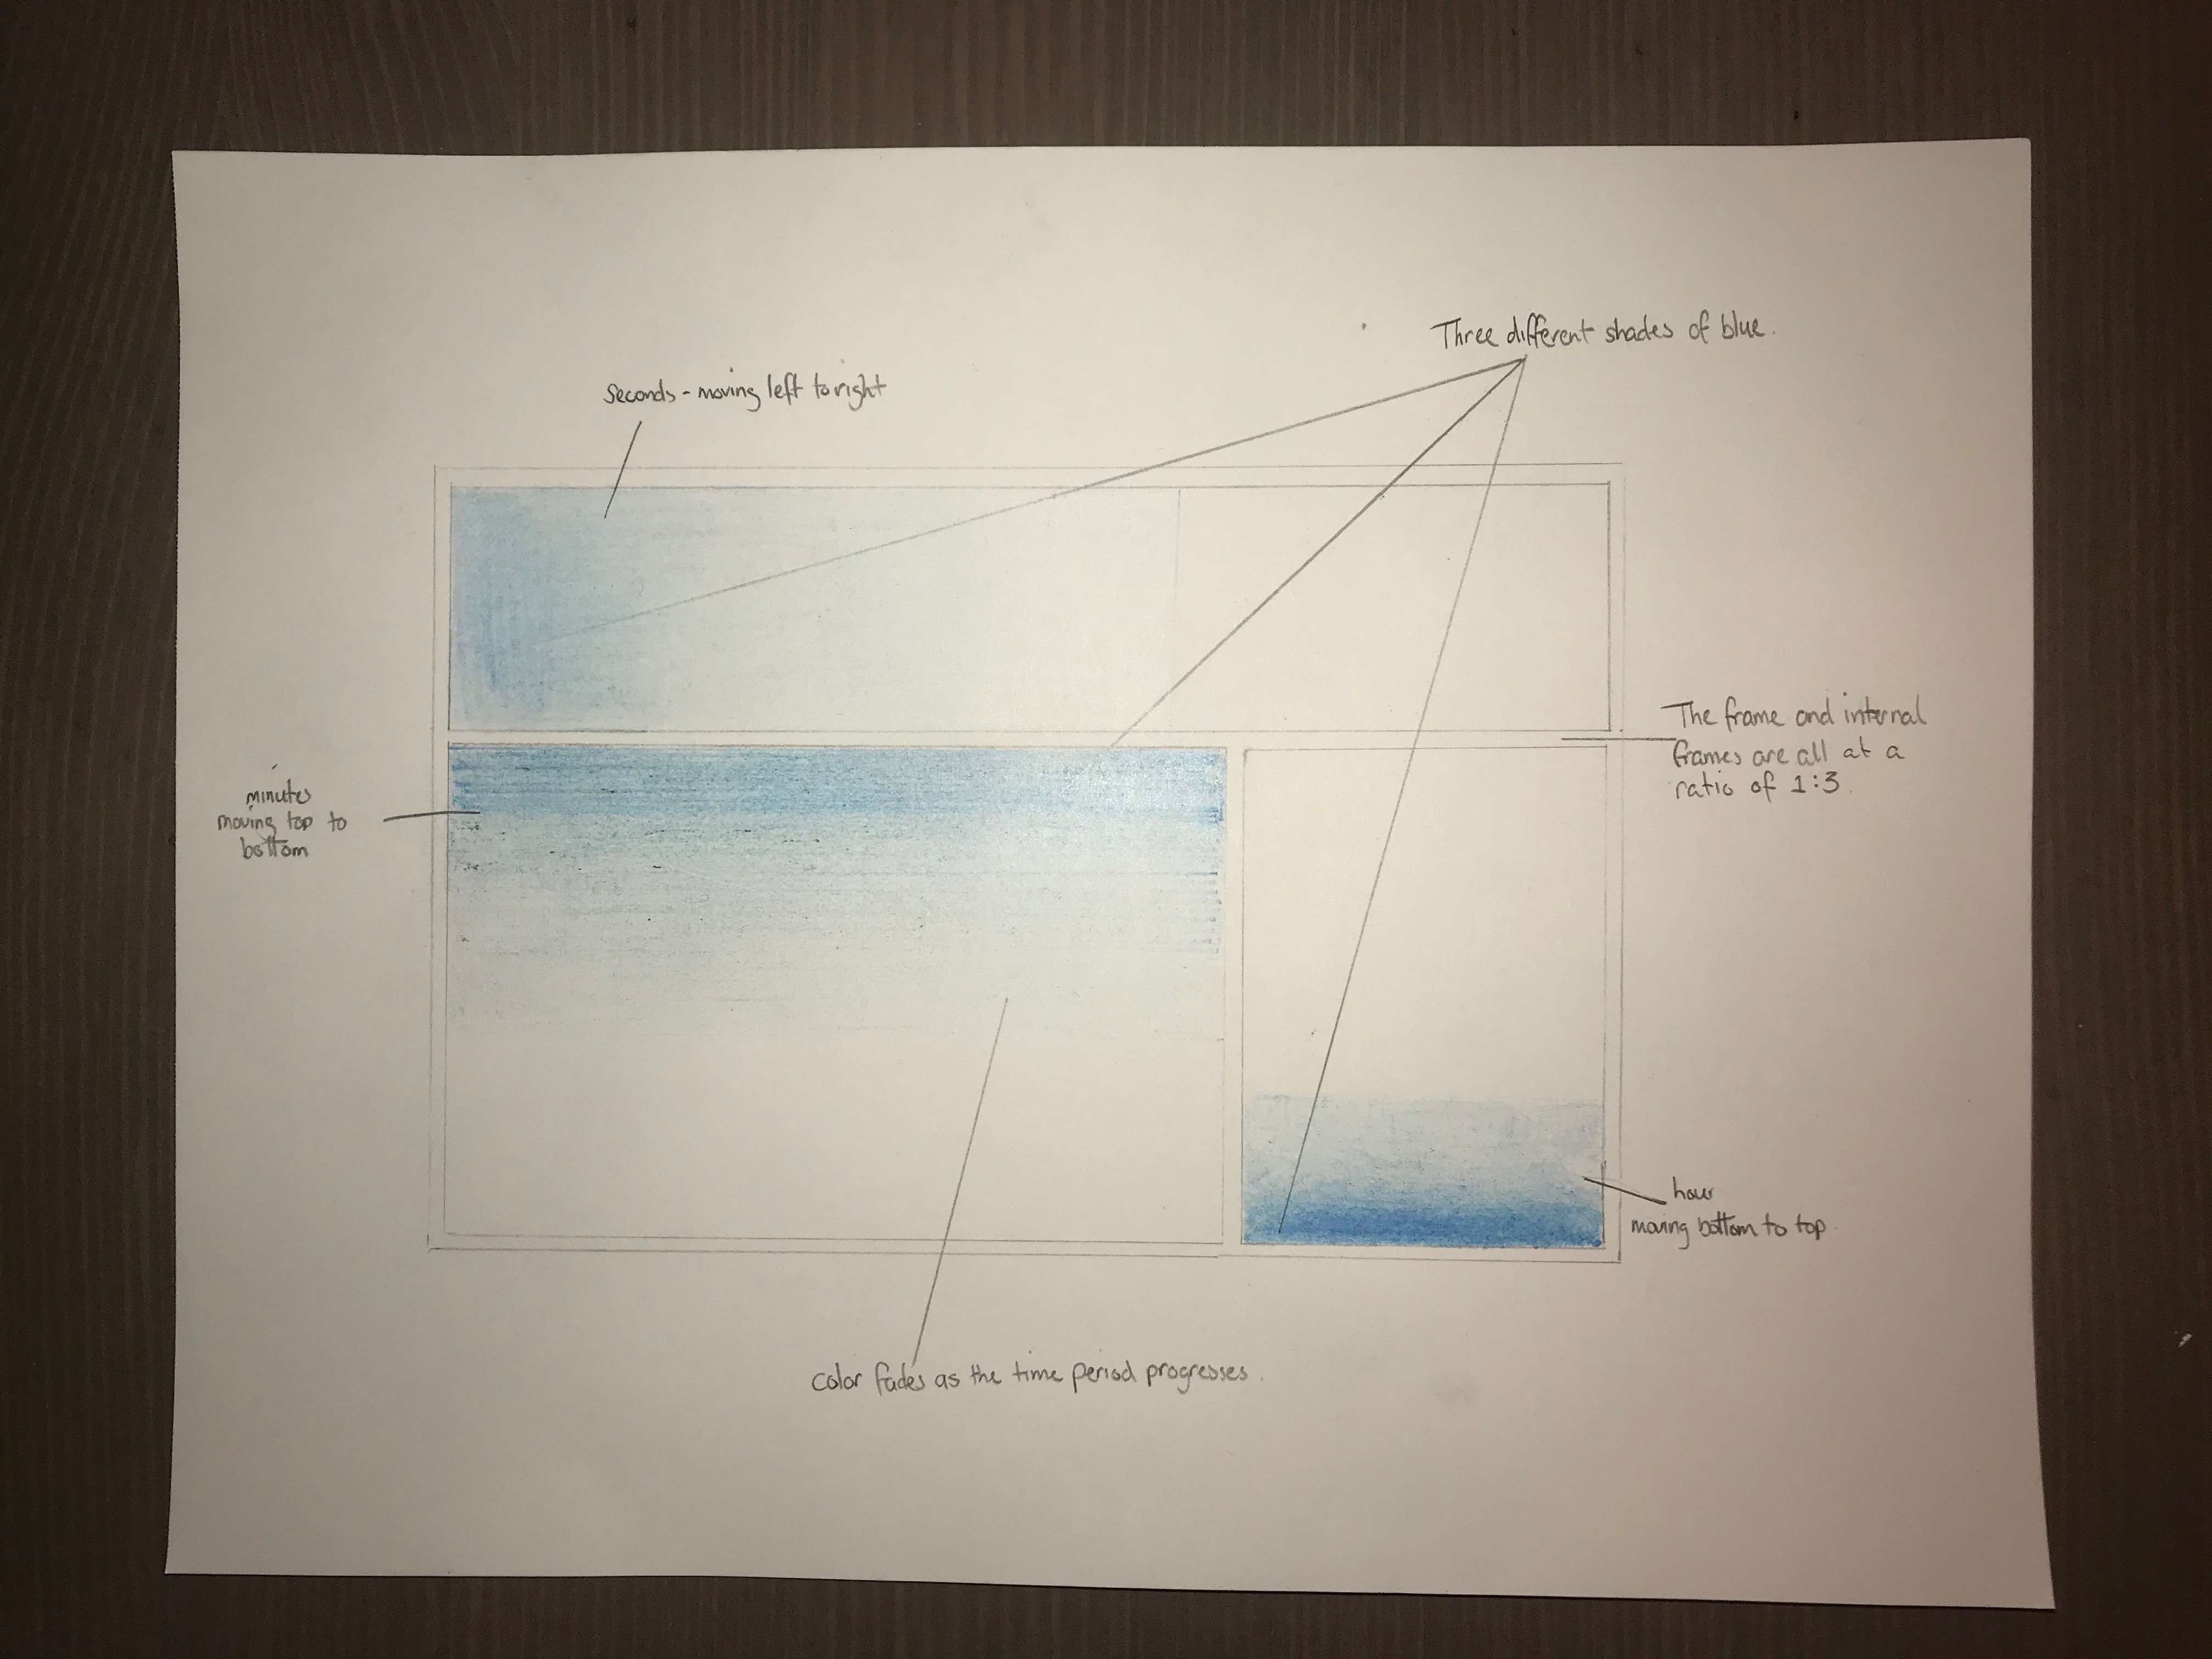 Three different shades of blue.
seconds - moving left to right
The frame and internal
frames are all at a
ratio of 1:3.
minutes
moving top to
bottom
hour
moving bottom to top.
color fades as the time period progresses.